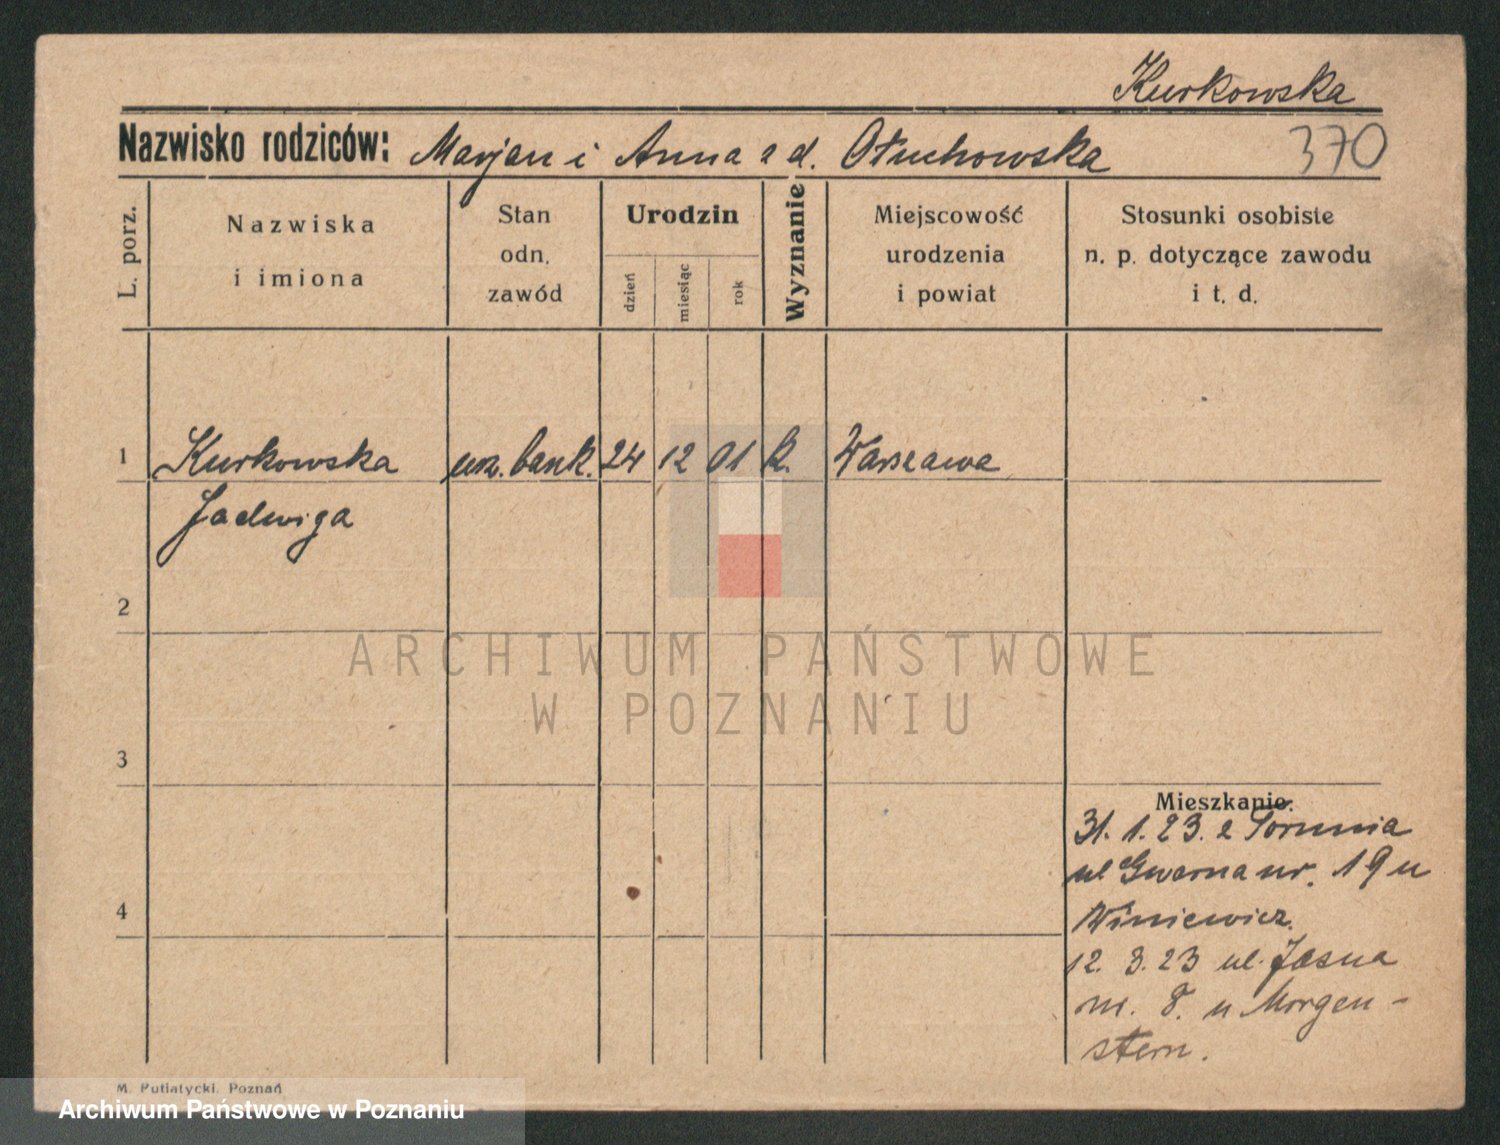 Kurkowska
Nazwisko rodziców: Marjan i Anna z d. Otuchowska
370
L. porz.
Nazwiska
i imiona
Stan
odn.
zawód
Urodzin
dzień
miesiąc
rok
Wyznanie
Miejscowość
urodzenia
i powiat
Stosunki osobiste
n. p. dotyczące zawodu
i t. d.
1 Kurkowska urz. bank. 24 12 01 k. Warszawa
Jadwiga
2
3
4
Mieszkanie.
31. 1. 23. z Torunia
ul Gwarna nr. 19 u
Winiewicz.
12. 3. 23 ul. Jasna
nr. 8. u Morgen-
stern.
M. Putiatycki. Poznań
ARCHIWUM PAŃSTWOWE
W POZNANIU
Archiwum Państwowe w Poznaniu